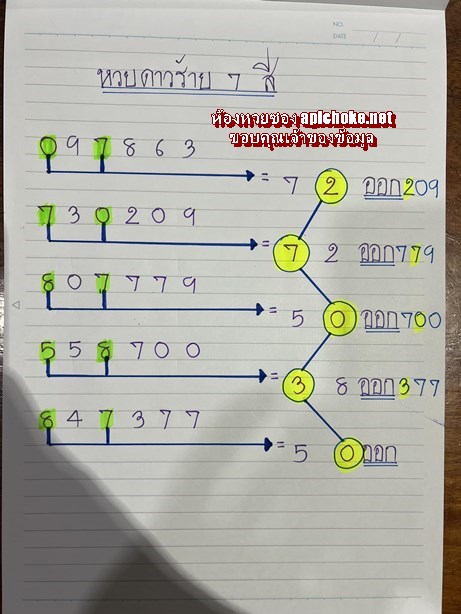 NO.
DATE / /
หวยดาวร้าย 7 สี
ห้องหวยซอง apichoke.net
ขอบคุณเจ้าของข้อมูล
0 9 7 8 6 3 = 7 2 ออก209
7 3 0 2 0 9 = 7 2 ออก779
8 0 7 7 7 9 = 5 0 ออก700
5 5 8 7 0 0 = 3 8 ออก377
8 4 7 3 7 7 = 5 0 ออก